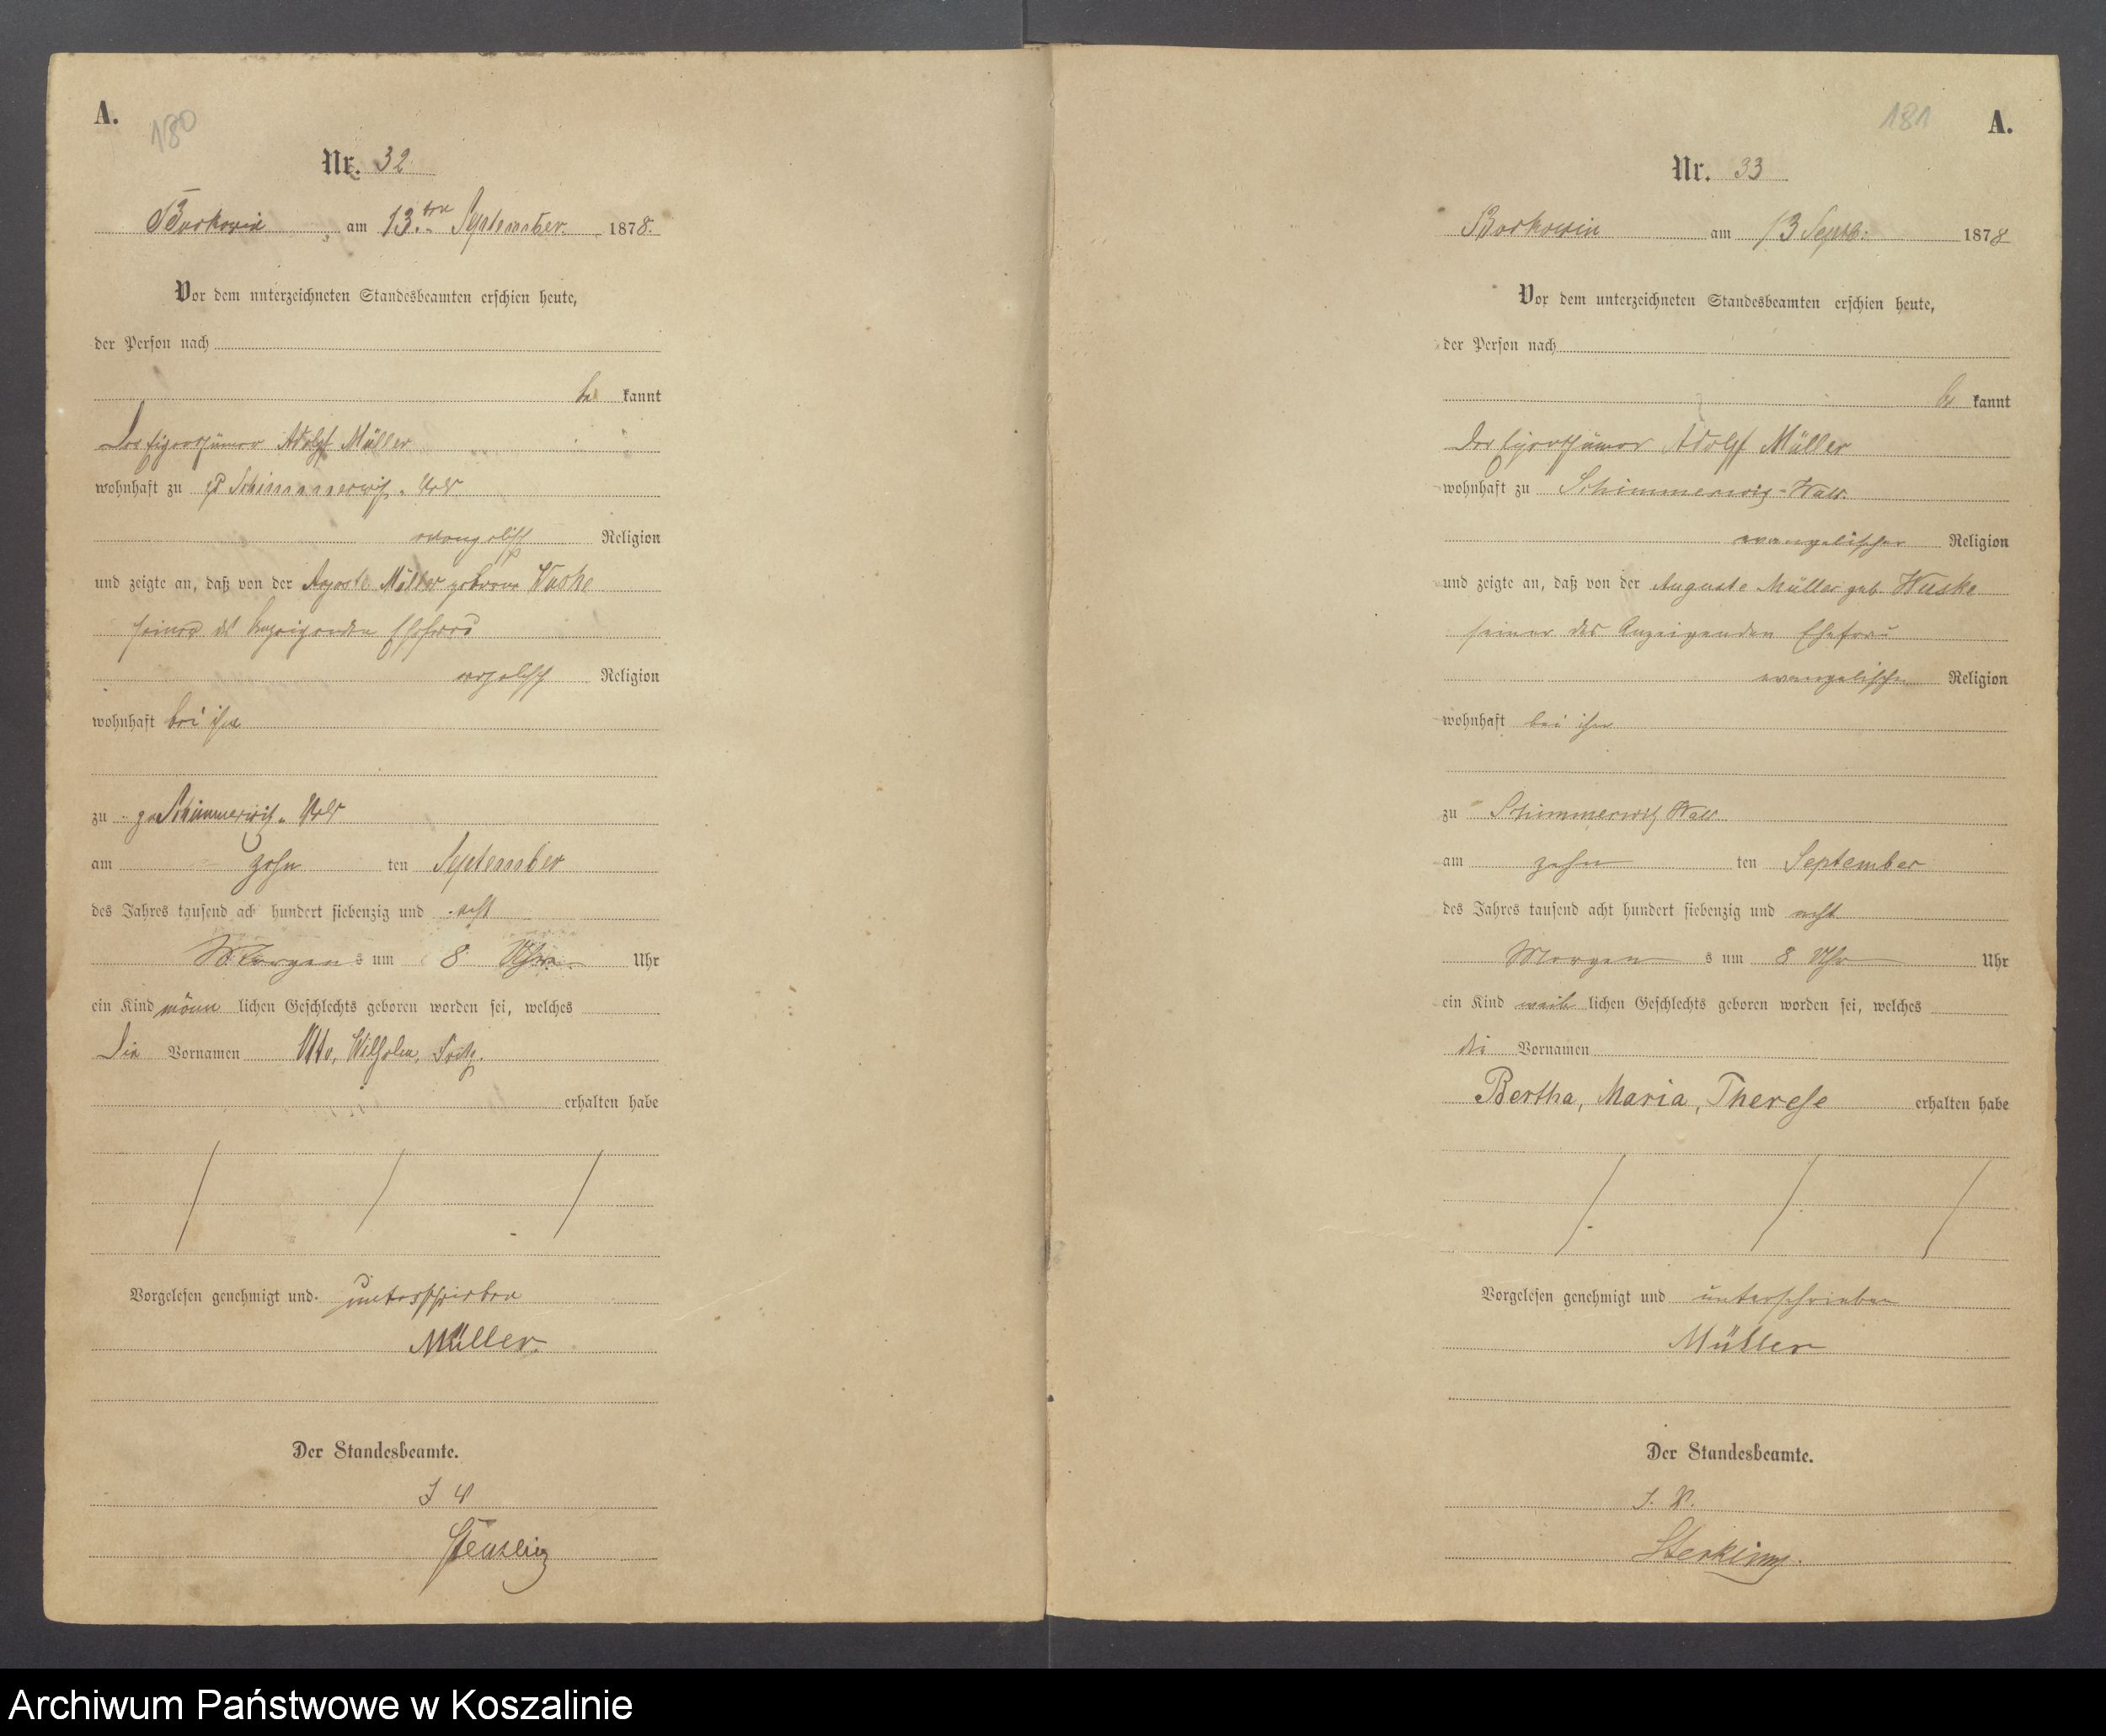 A.
180
Nr. 32
Borkowin am 13ten September 1878.
Vor dem unterzeichneten Standesbeamten erschien heute,
der Person nach
be kannt
Der Eigenthümer Adolf Müller
wohnhaft zu zu Schimmerwitz-Wald
evangelisch Religion
und zeigte an, daß von der Auguste Müller geborene Wuske
seiner des Anzeigenden Ehefrau
evangelisch Religion
wohnhaft bei ihm
zu zu Schimmerwitz-Wald
am zehn ten September
des Jahres tausend acht hundert siebenzig und acht
Morgen s um 8 Uhr Uhr
ein Kind männ lichen Geschlechts geboren worden sei, welches
die Vornamen Otto, Wilhelm, Fritz.
erhalten habe
Vorgelesen genehmigt und unterschrieben
Müller.
Der Standesbeamte.
I V
A.
181
Nr. 33
Borkowin am 13 Septb. 1878
Vor dem unterzeichneten Standesbeamten erschien heute,
der Person nach
be kannt
Der Eigenthümer Adolf Müller
wohnhaft zu Schimmerwitz-Wald.
evangelischer Religion
und zeigte an, daß von der Auguste Müller geb. Wuske
seiner des Anzeigenden Ehefrau
evangelischen Religion
wohnhaft bei ihm
zu Schimmerwitz Wald
am zehn ten September
des Jahres tausend acht hundert siebenzig und acht
Morgen s um 8 Uhr Uhr
ein Kind weib lichen Geschlechts geboren worden sei, welches
die Vornamen
Bertha, Maria, Therese erhalten habe
Vorgelesen genehmigt und unterschrieben
Müller
Der Standesbeamte.
I. V.
Archiwum Państwowe w Koszalinie